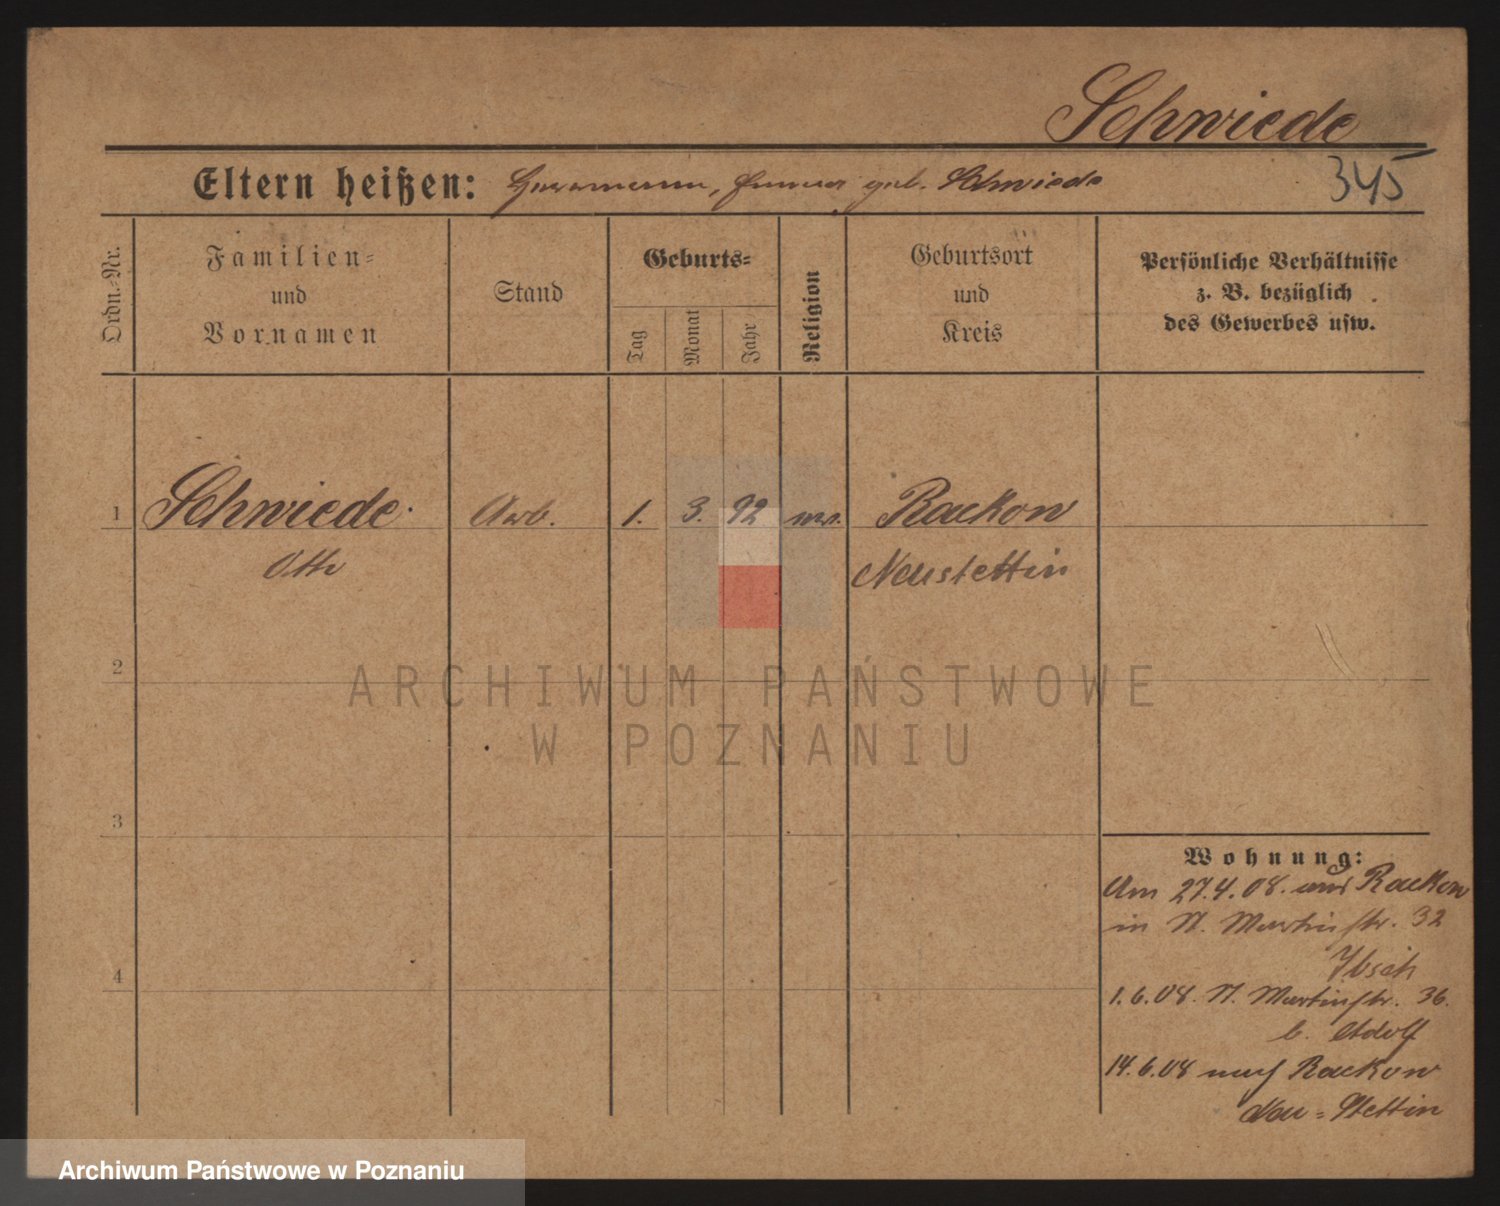 Schwiede
345
Eltern heißen: Hermann, Emma geb. Schwiede
Ordn.-Nr.
Familien-
und
Vornamen
Stand
Geburts-
Tag
Monat
Jahr
Religion
Geburtsort
und
Kreis
Persönliche Verhältnisse
z. B. bezüglich
des Gewerbes usw.
1 Schwiede. Arb. 1. 3. 92 Rackow
Otto Neustettin
2
3
4
Wohnung:
Am 27.4.08. aus Rackow
in St. Martinstr. 32
1.6.08. St. Martinstr. 36.
b. Adolf
14.6.08 nach Rackow
Neu-Stettin
ARCHIWUM PAŃSTWOWE
W POZNANIU
Archiwum Państwowe w Poznaniu